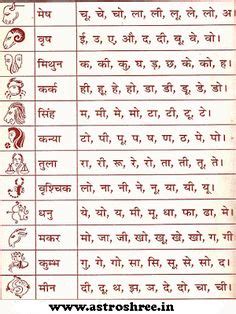 मेष चू. चे. चो. ला. ली. लू. ले. लो. अ.
वृष ई. उ. ए. औ. द. दी. वू. वे. वो.
मिथुन क. की. कु. घ. ड़. छ. के. को. ह.
कर्क ही. हू. हे. हो. डा. डी. डू. डे. डो.
सिंह म. मी. मे. मो. टा. टी. टू. टे.
कन्या टो. पी. पू. प. ष. ण. ठ. पे. पो.
तुला रा. री. रू. रे. रो. ता. ती. तू. ते.
वृश्चिक लो. ना. नी. ने. नू. या. यी. यू.
धनु ये. यो. य. मी. मू. धा. फा. ढा. मे.
मकर मो. जा. जी. खी. खू. खे. खो. ग. गी.
कुम्भ गु. गे. गो. सा. सि. सू. से. सो. द.
मीन दी. दू. थ. झ. ञ. दे. दो. चा. ची.
www.astroshree.in